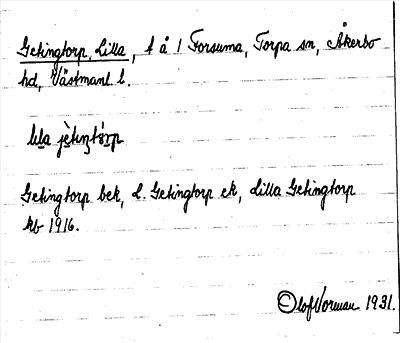 Getingtorp, Lilla, t å 1 Forsuma, Torpa sn, Åkerbo
hd, Västmanl. l.
lila jètiŋtórp
Getingtorp bek, L. Getingtorp ek, Lilla Getingtorp
kb 1916.
Olof Norman 1931.